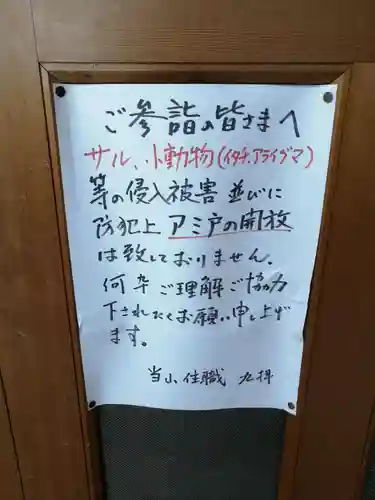 ご参詣の皆さまへ
サル、小動物(イタチ、アライグマ)
等の侵入被害 並びに
防犯上 アミ戸の開放
は致しておりません。
何卒 ご理解ご協力
下されたくお願い申し上げ
ます。
当山 住職 九拝